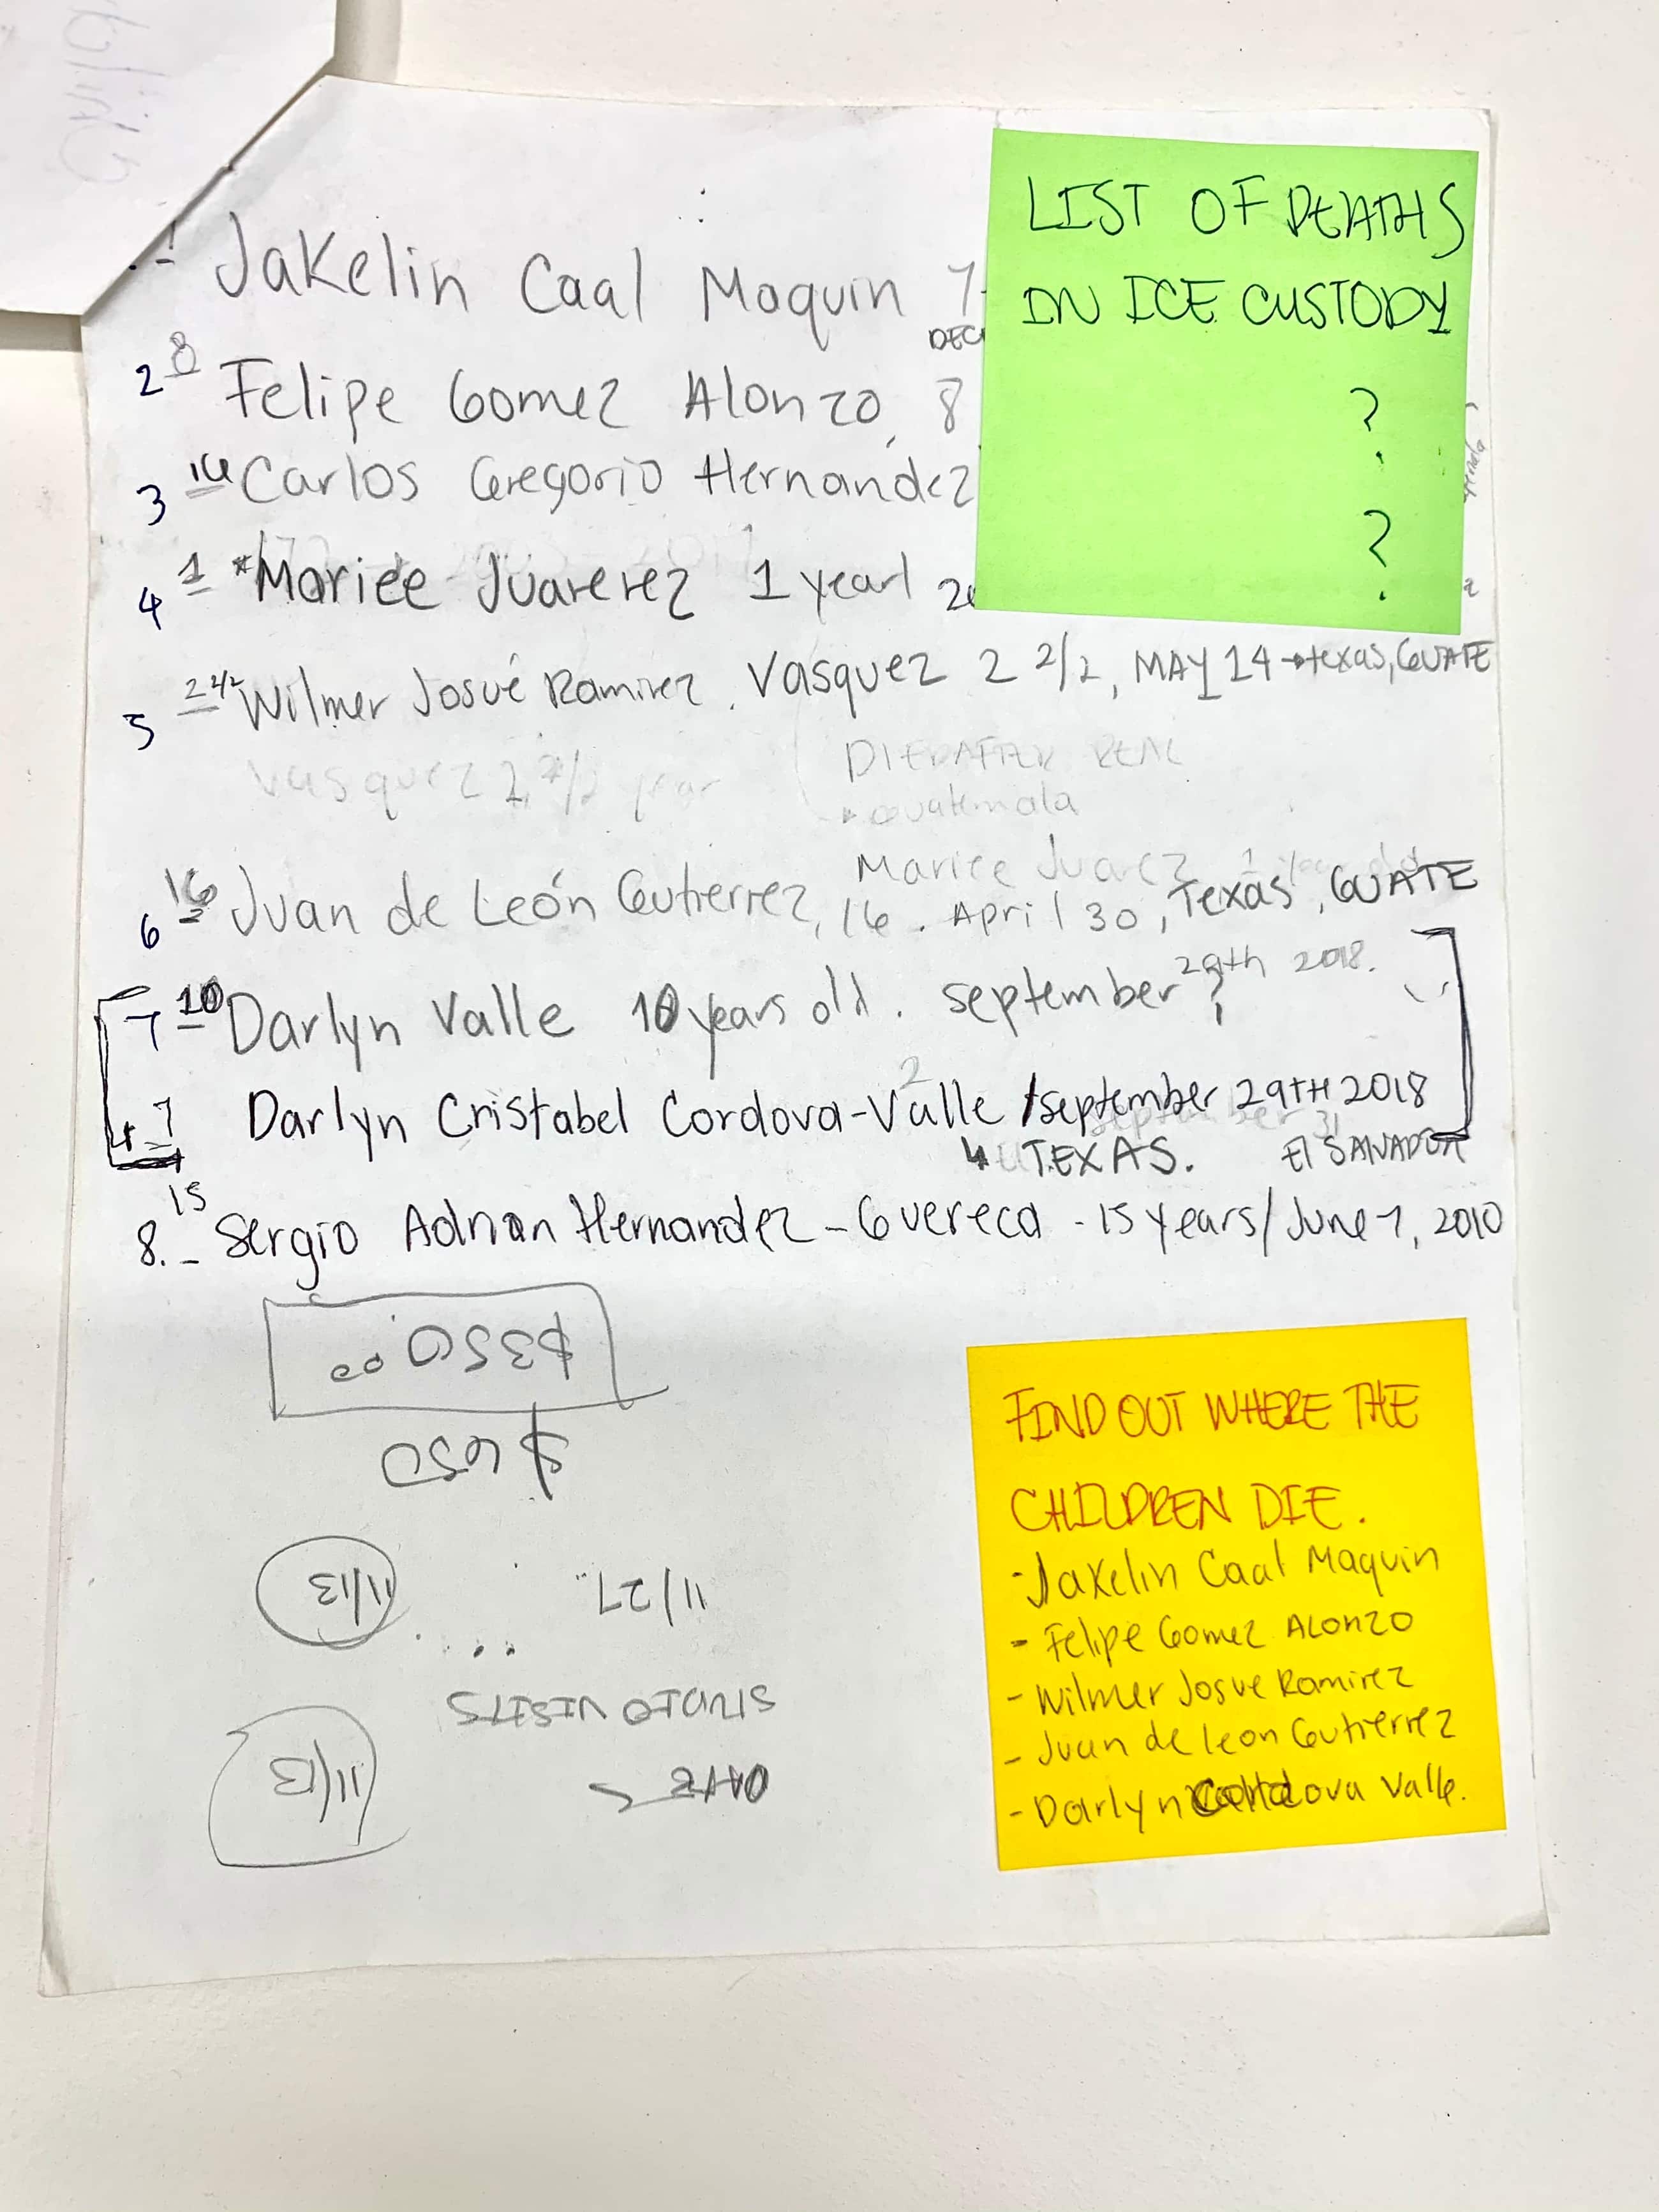 Jakelin Caal Maquin 7
DEC
2 8 Felipe Gomez Alonzo, 8
3 16 Carlos Gregorio Hernandez
4 1 *Mariee Juarerez 1 year 20
5 2 2/2 Wilmer Josué Ramirez. Vasquez 2 2/2, MAY 14 → texas, GUATE
Vasquez 2, 2/2 year
DIED AFTER REAC
Guatemala
Mariee Juarez 1 year old
6 16 Juan de León Gutierrez, 16. April 30, Texas, GUATE
7 10 Darlyn Valle 10 years old. september 29th ? 2018.
Darlyn Cristabel Cordova-Valle / september 29TH 2018
TEXAS. El SALVADOR
8. - 15 Sergio Adrian Hernandez - Guereca - 15 years / June 7, 2010
$350.00
$650
11/13 11/27
STUDIO VISITS
11/13 DATE
LIST OF DEATHS
IN ICE CUSTODY
?
?
FIND OUT WHERE THE
CHILDREN DIE.
- Jakelin Caal Maquin
- Felipe Gomez Alonzo
- Wilmer Josue Ramirez
- Juan de leon Gutierrez
- Darlyn Cordova Valle.